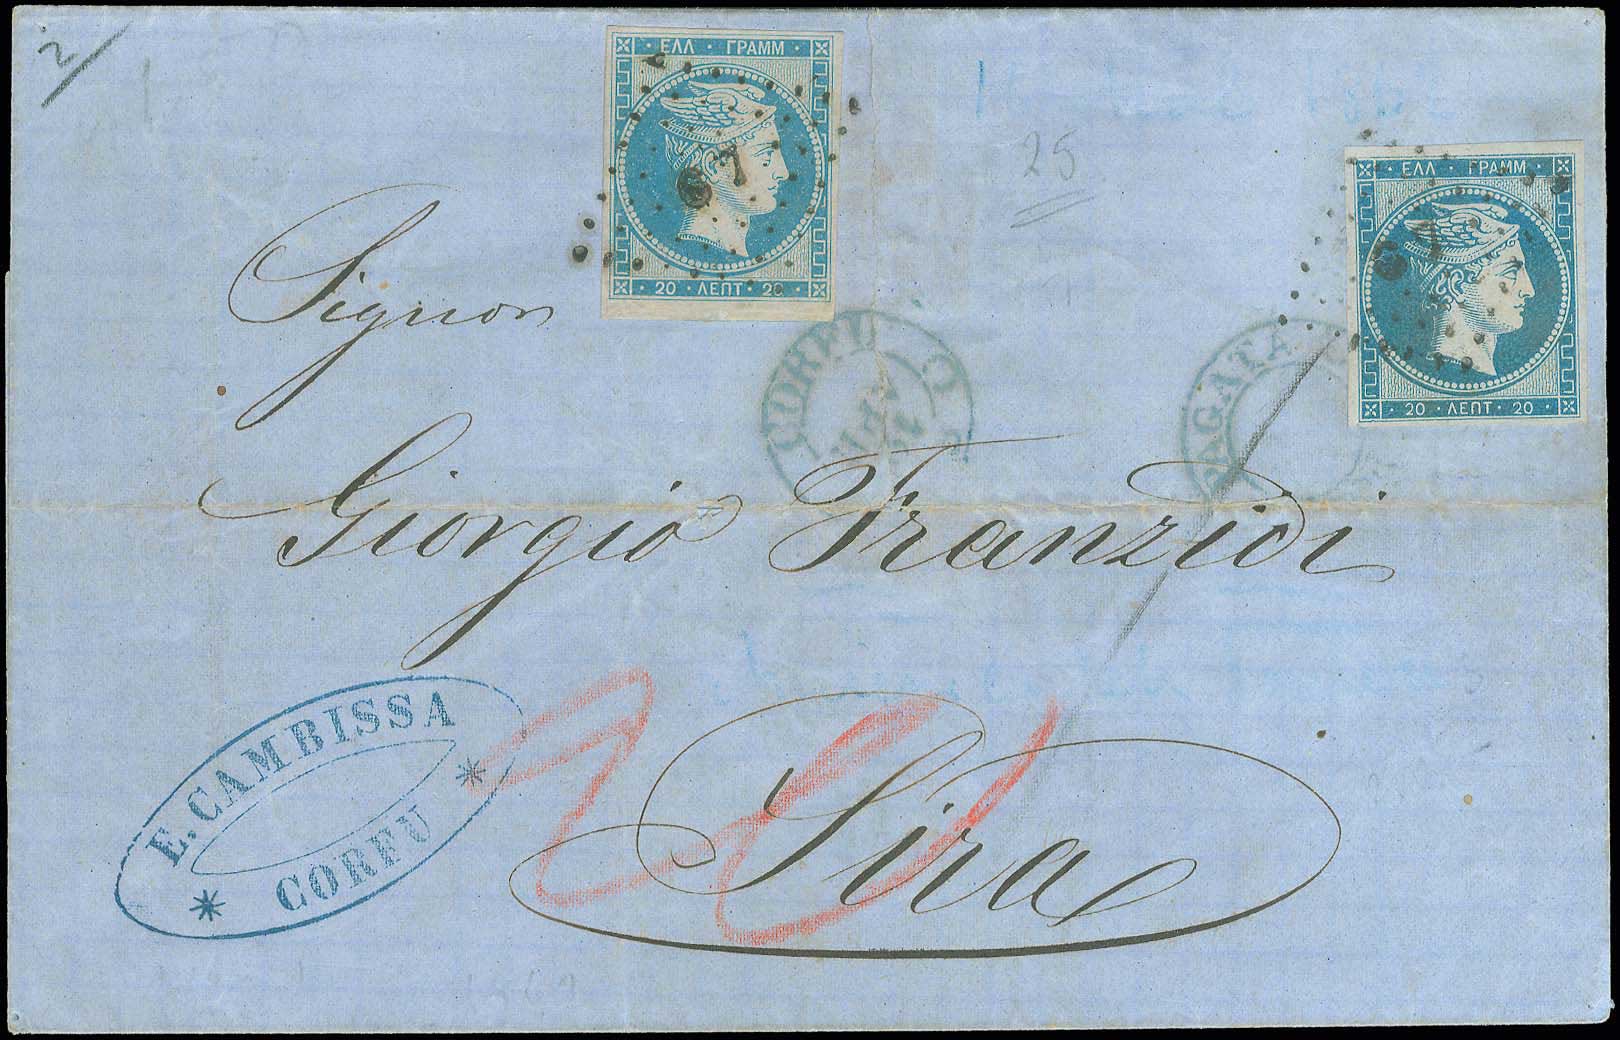 2
ΕΛΛ · ΓΡΑΜΜ
67
20 · ΛΕΠΤ · 20
25
ΕΛΛ · ΓΡΑΜΜ
67
20 · ΛΕΠΤ · 20
Signor
CORFU
PAGATA
Giorgio Franzidi
E. CAMBISSA
* CORFU *
20
Sira